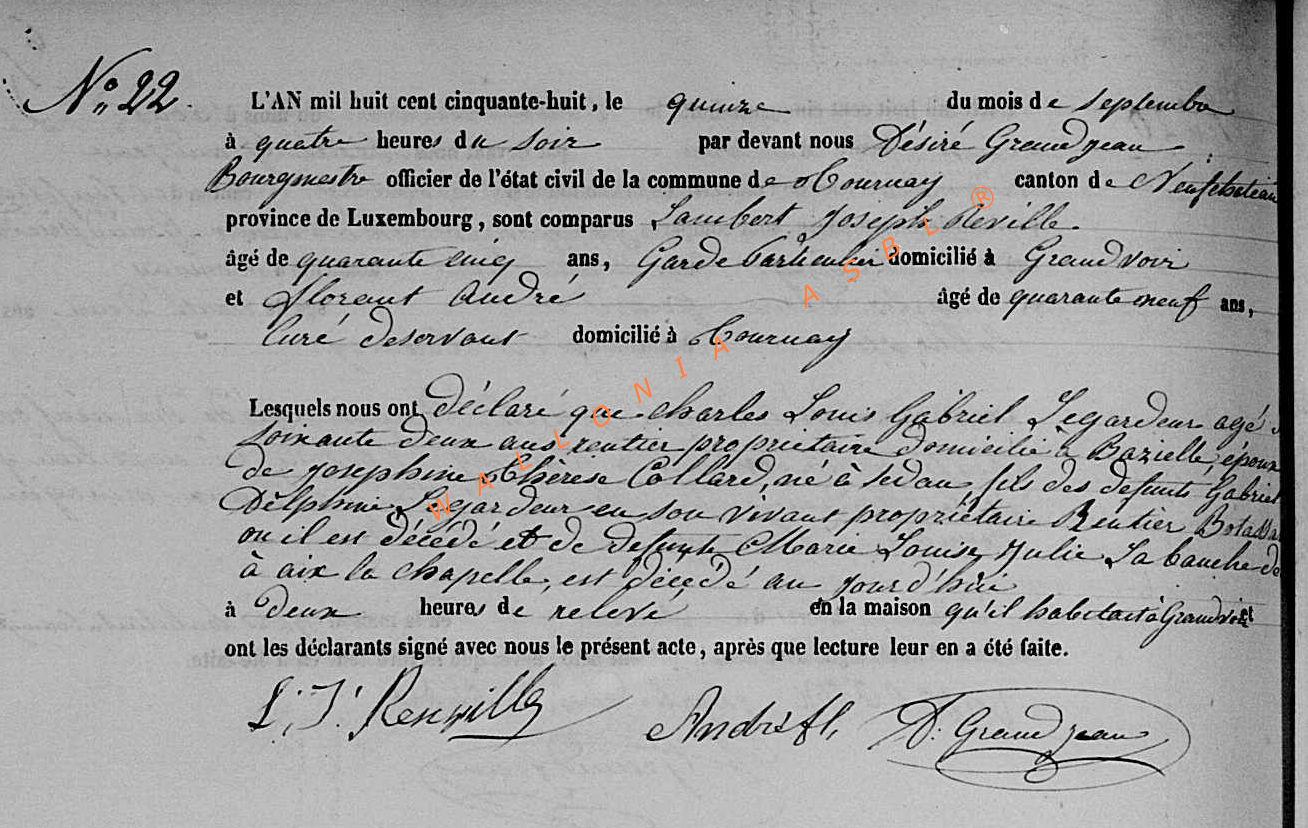 N° 22.
L'AN mil huit cent cinquante-huit, le quinze du mois de septembre
à quatre heures du soir par devant nous Désiré Grandjean
Bourgmestre officier de l'état civil de la commune de Tournay canton de Neufchateau
province de Luxembourg, sont comparus Lambert Joseph Reville
âgé de quarante cinq ans, Garde Particulier domicilié à Grandvoir
et Florent André âgé de quarante neuf ans,
Curé deservant domicilié à Tournay
Lesquels nous ont déclaré que Charles Louis Gabriel Legardeur agé
soixante deux ans rentier propriétaire domicilié à Bazielle, époux
de Josephine Thérèse Collard, né à Sedan, fils des defunts Gabriel
Delphine Legardeur en son vivant propriétaire Rentier
ou il est décédé et de defunte Marie Louise Julie La bauche de
à aix la chapelle, est décédé au jourd'hui
à deux heures de relevé, en la maison qu'il habitait à Grandvoir et
ont les déclarants signé avec nous le présent acte, après que lecture leur en a été faite.
L. J. Renvill André fl. D. Grandjean
WALLONIA ASBL ®